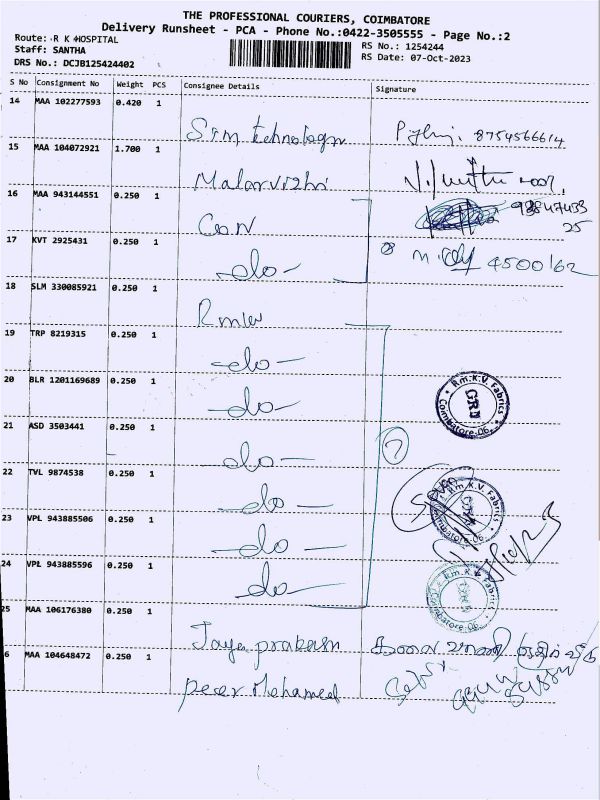 THE PROFESSIONAL COURIERS, COIMBATORE
Delivery Runsheet - PCA - Phone No.:0422-3505555 - Page No.:2
Route: R K HOSPITAL
RS No.: 1254244
Staff: SANTHA
RS Date: 07-Oct-2023
DRS No.: DCJB125424402
S No Consignment No Weight PCS Consignee Details Signature
14 MAA 102277593 0.420 1
8754566614
15 MAA 104072921 1.700 1
Malarvizhi
16 MAA 943144551 0.250 1
17 KVT 2925431 0.250 1
-do-
18 SLM 330085921 0.250 1
19 TRP 8219315 0.250 1
-do-
20 BLR 1201169689 0.250 1
-do-
R.m.K.V. Fabrics
GRN
Coimbatore-06.
21 ASD 3503441 0.250 1
-do-
7
22 TVL 9874538 0.250 1
-do-
R.m.K.V. Fabrics
Coimbatore-06.
23 VPL 943885506 0.250 1
-do-
24 VPL 943885596 0.250 1
do-
25 MAA 106176380 0.250 1
Jaya prakash
6 MAA 104648472 0.250 1
peer Mohamed